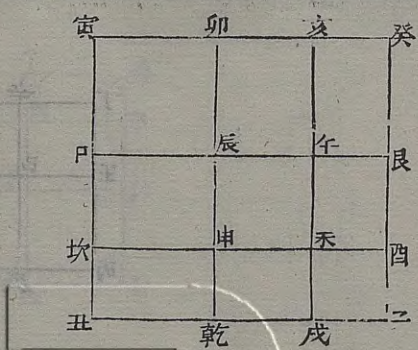 寅 卯 亥 癸
巳 辰 午 艮
坎 申 未 酉
丑 乾 戌 乙